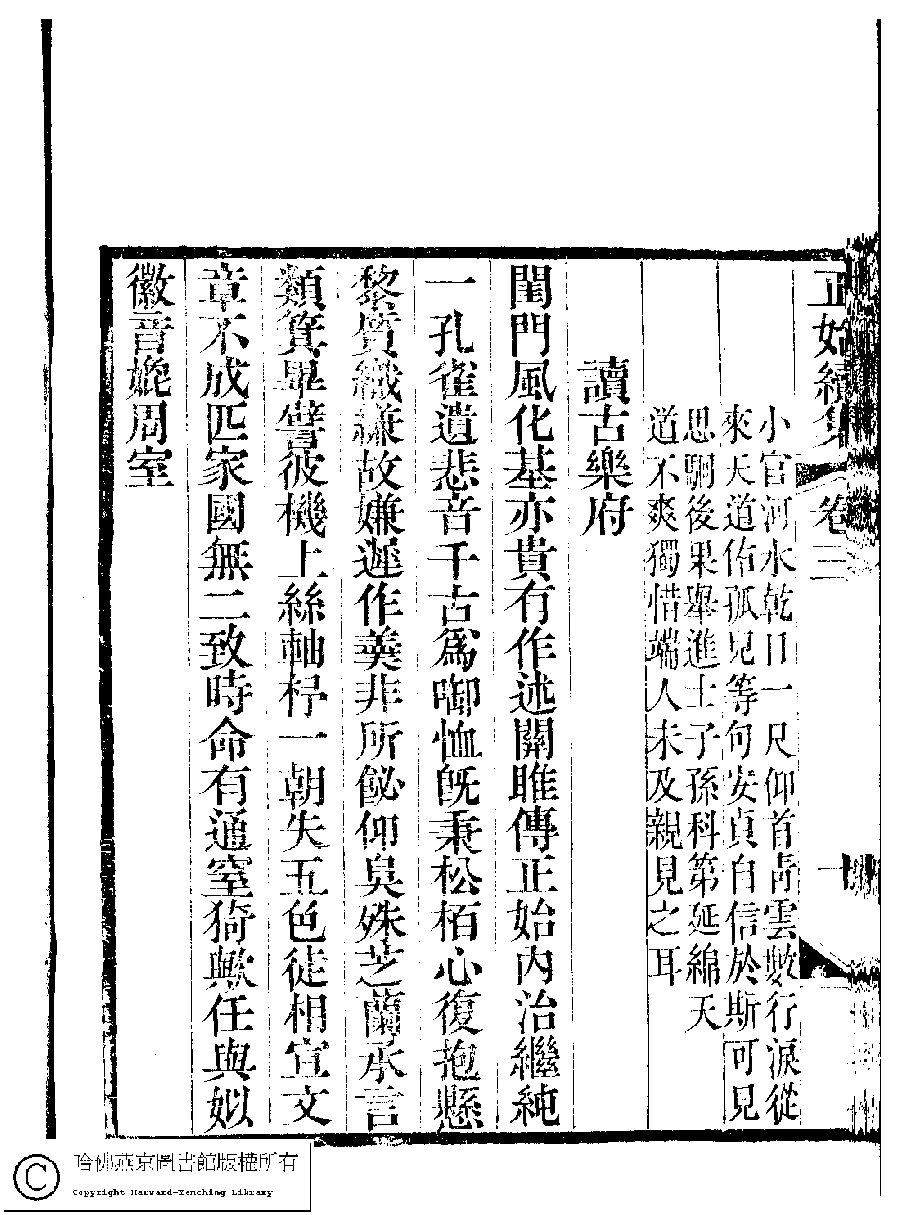 正始續集 卷三 十
小官河水乾日一尺仰首靑雲數行淚從
來天道佑孤兒等句安貞自信於斯可見
思馴後果舉進士子孫科第延綿天
道不爽獨惜端人未及親見之耳
讀古樂府
閨門風化基亦貴有作述關雎傳正始內治繼純
一孔雀遺悲音千古爲啣恤旣秉松栢心復抱懸
黎質織縑故嫌遲作羹非所飶仰臭殊芝蘭承言
類箕畢譬彼機上絲軸杼一朝失五色徒相宣文
章不成匹家國無二致時命有通窒猗歟任與姒
徽音嬎周室
哈佛燕京圖書館版權所有
Copyright Harvard-Yenching Library